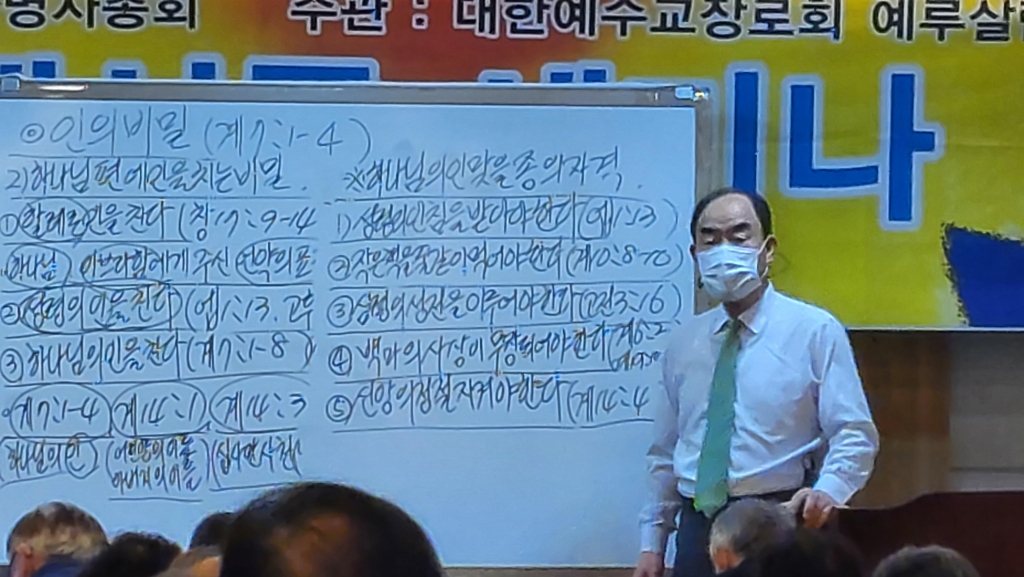 명사총회 주관 : 대한예수교장로회 예루살렘
세미나
◎ 인의 비밀 (계7:1-4)
2) 하나님편에 인을 치는 비밀.
① 할례로 인을 친다 (창17:9-14
하나님 아브라함에게 주신 언약의 표
② 성령의 인을 친다 (엡1:13. 고후
③ 하나님의 인을 친다 (계7:1-8)
(계7:1-4) (계14:1) (계14:3
하나님의 인 (어린양의 이름 (십사만 사천
아버지의 이름)
※ 하나님의 인 맞을 종의 자격.
1) 성령의 인침을 받아야 한다 (엡1:13)
② 작은 책을 꿀같이 먹어야 한다 (계10:8-10)
③ 성령의 성전을 이루어야 한다 (고전3:16)
④ 백마의 사상이 무장되어야 한다 (계6:2
⑤ 신앙의 정절 지켜야 한다 (계14:4